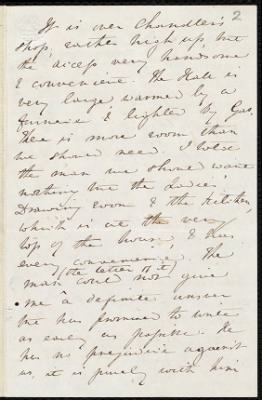 2
It is over Chandler's
shop, rather high up, but
the access very handsome
& convenient. The Hall is
very large warmed by a
furnace & lighted by Gas,
there is more room than
we should need. I told
the man we should want
nothing but the Ladies'
Drawing room & the Kitchen,
which is at the very
top of the house, & has
every convenience. The
man (the letter of it) could not give
me a definite answer
but has promised to write
as early as possible. He
has no prejudice against
us, it is purely with him